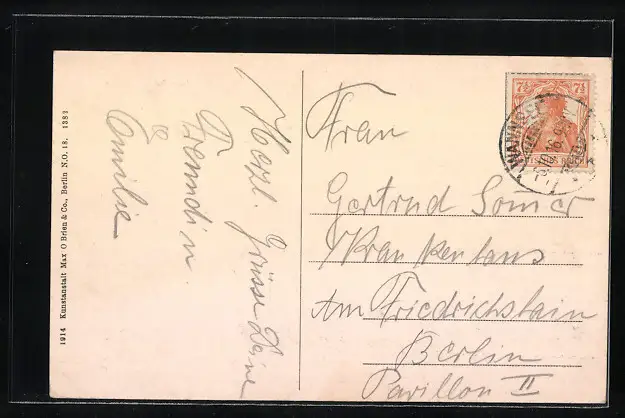 1914 Kunstanstalt Max O'Brien & Co., Berlin N.O. 18. 1382
Herzl. Grüsse Deine
Freundin
Emilie
7½ 7½
Frau
Gertrud
Krankenhaus
Am Friedrichshain
Berlin
Pavillon II